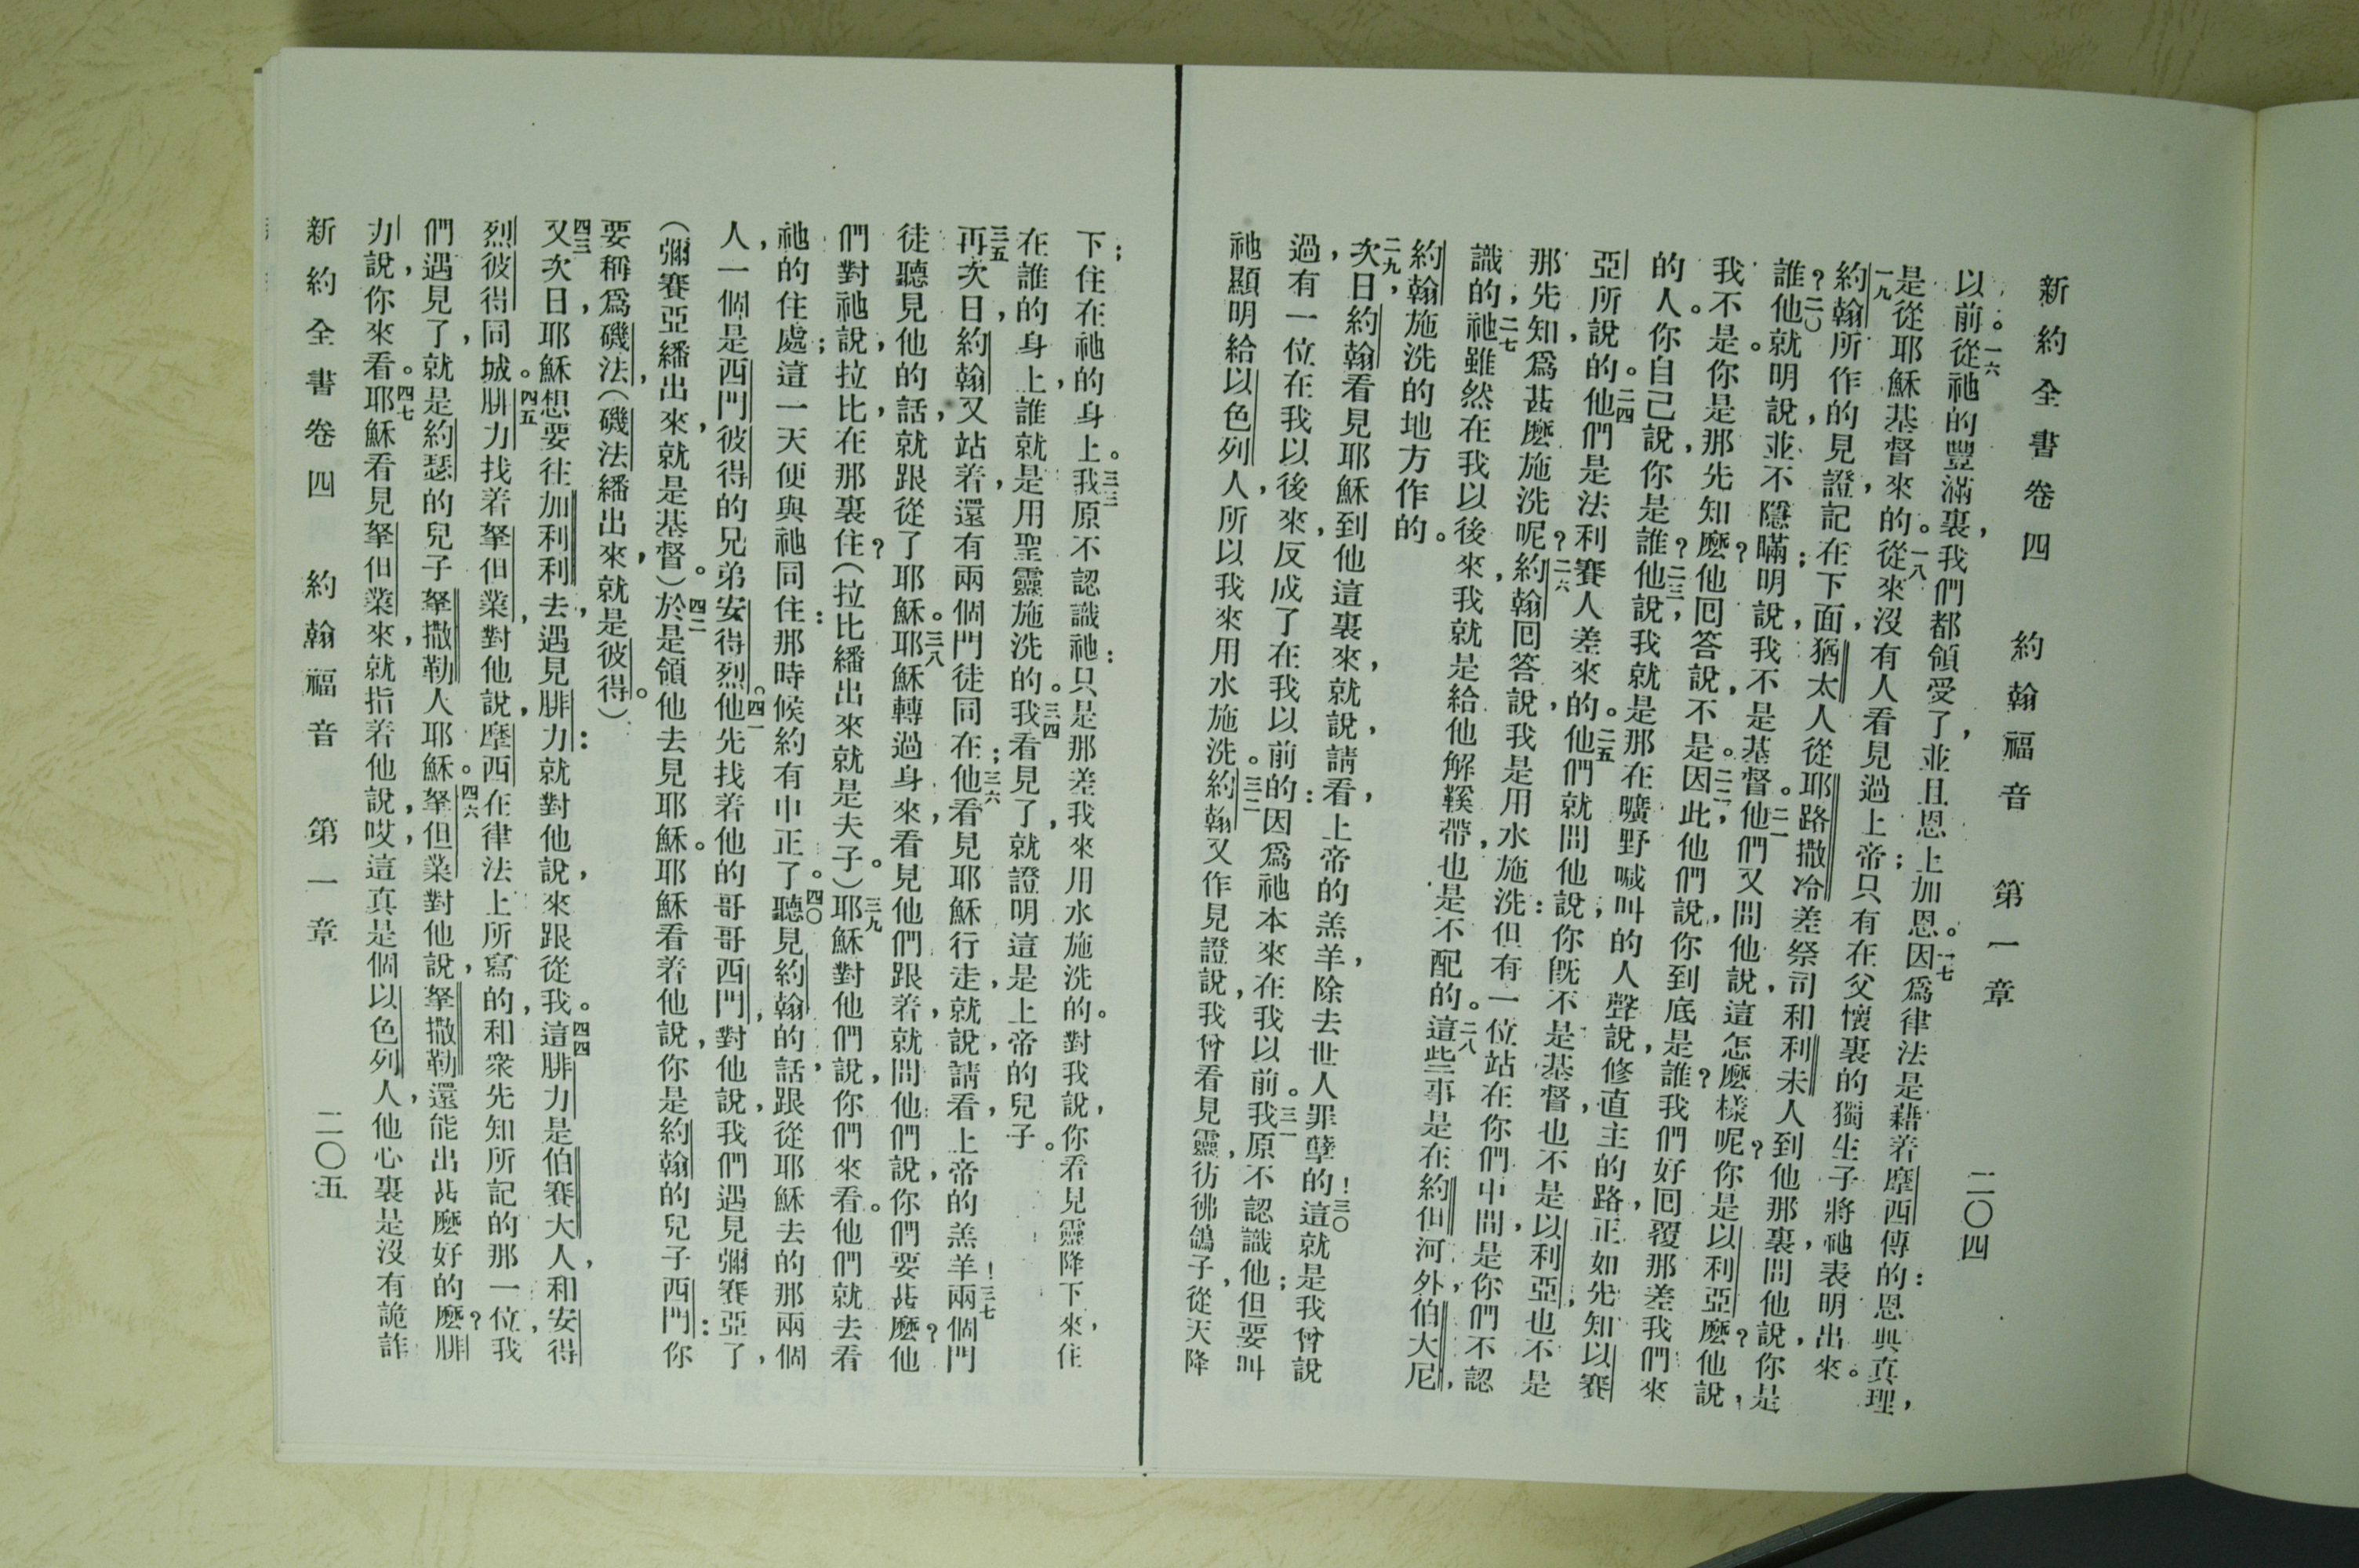 新約全書卷四　約翰福音　第一章　二〇四
以前。一六從祂的豐滿裏、我們都領受了、並且恩上加恩。一七因爲律法是藉着摩西傳的：恩典真理、
是從耶穌基督來的。一八從來沒有人看見過上帝；只有在父懷裏的獨生子將祂表明出來。
一九約翰所作的見證、記在下面、猶太人從耶路撒冷差祭司和利未人到他那裏、問他說、你是
誰？二〇他就明說、並不隱瞞；明說、我不是基督。二一他們又問他說、這怎麼樣呢？你是以利亞麼？他說、
我不是。你是那先知麼？他回答說、不是。二二、因此他們說、你到底是誰？我們好回覆那差我們來
的人。你自己說、你是誰？二三、他說我就是那在曠野喊叫的人聲、說、修直主的路、正如先知以賽
亞所說的。二四他們是法利賽人差來的。二五他們就問他說：你旣不是基督、也不是以利亞、也不是
那先知、爲甚麼施洗呢？二六約翰回答說、我是用水施洗：但有一位站在你們中間、是你們不認
識的、二七祂雖然在我以後來、我就是給他解鞵帶、也是不配的。二八這些事是在約但河外、伯大尼、
約翰施洗的地方作的。
二九、次日約翰看見耶穌到他這裏來、就說、請看、上帝的羔羊、除去世人罪孽的！三〇這就是我曾說
過、有一位在我以後來、反成了在我以前的：因爲祂本來在我以前。三一我原不認識他；但要叫
祂顯明給以色列人、所以我來用水施洗。三二約翰又作見證說、我曾看見靈、彷彿鴿子、從天降
下；住在祂的身上。三三我原不認識祂：只是那差我來用水施洗的。對我說、你看見靈降下來、住
在誰的身上、誰就是用聖靈施洗的。三四我看見了、就證明這是上帝的兒子。
三五再次日、約翰又站着、還有兩個門徒同在；三六他看見耶穌行走、就說、請看、上帝的羔羊！三七兩個門
徒聽見他的話、就跟從了耶穌。三八耶穌轉過身來、看見他們跟着、就問他們說、你們要甚麼？他
們對祂說、拉比、在那裏住？（拉比繙出來就是夫子。）三九耶穌對他們說、你們來看。他們就去看
祂的住處；這一天便與祂同住：那時候約有申正了。四〇聽見約翰的話、跟從耶穌去的那兩個
人、一個是西門彼得的兄弟安得烈。四一他先找着他的哥哥西門、對他說、我們遇見彌賽亞了、
（彌賽亞繙出來、就是基督。）四二於是領他去見耶穌。耶穌看着他說、你是約翰的兒子西門：你
要稱爲磯法、（磯法繙出來、就是彼得。）
四三又次日、耶穌想要往加利利去、遇見腓力：就對他說、來跟從我。四四這腓力是伯賽大人、和安得
烈彼得同城。四五腓力找着拏但業、對他說、摩西在律法上所寫的、和衆先知所記的那一位、我
們遇見了、就是約瑟的兒子拏撒勒人耶穌。四六拏但業對他說、拏撒勒還能出甚麼好的麼？腓
力說、你來看。四七耶穌看見拏但業來、就指着他說、哎、這真是個以色列人、他心裏是沒有詭詐
新約全書卷四　約翰福音　第一章　二〇五